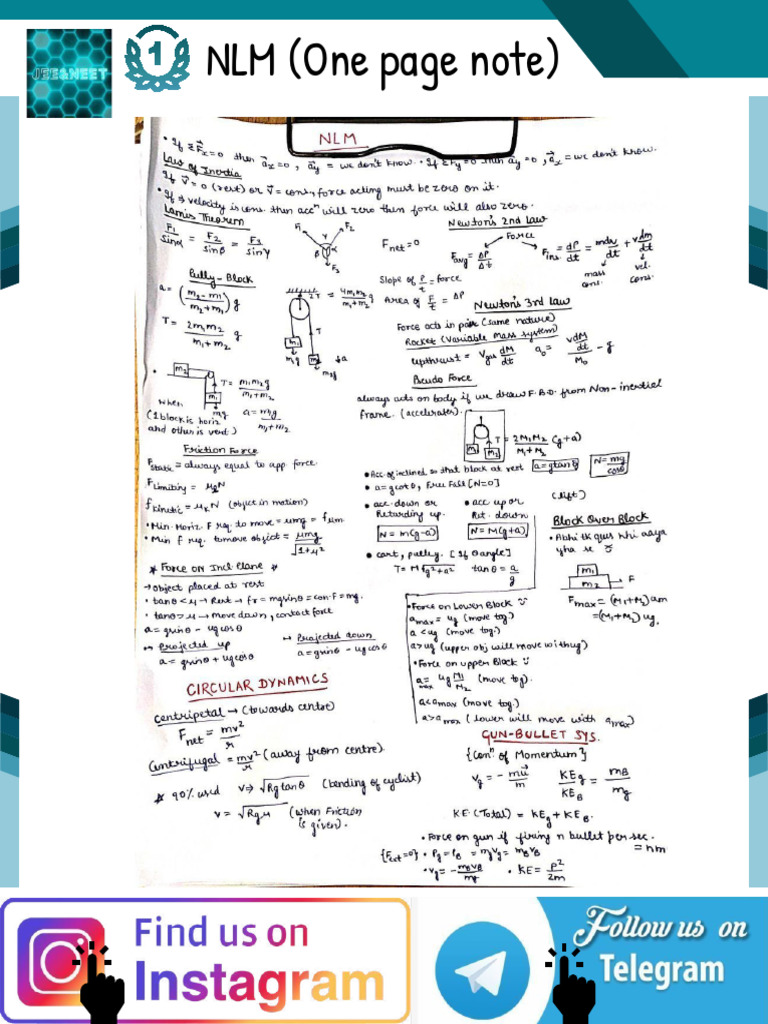 JEE&NEET
1
NLM (One page note)
NLM
• If ΣF⃗x=0 then a⃗x=0, a⃗y = we don't know. • If ΣFy=0 then ay=0, a⃗x = we don't know.
Law of Inertia
If V⃗=0 (rest) or V⃗=cons., force acting must be zero on it.
• If ⇒ velocity is cons. then accⁿ will zero then force will also zero.
Lamis Theorem
F1/sinα = F2/sinβ = F3/sinγ
F1 F2 γ β α F3
Fnet=0
Newton's 2nd law
Force
Favg = ΔP/Δt
Fins. = dP/dt = mdv/dt + vdm/dt
mass cons. vel. cons.
Slope of P/t = force
Area of F/t = ΔP
Pully-Block
a = (m2-m1/m2+m1)g
T = 2m1m2/m1+m2 g
2T = 4m1m2g/m1+m2
T
m1 m1g m2 m2g ↓a
Newton's 3rd law
Force acts in pair (same nature)
Rocket (Variable Mass system)
upthrust = Vgu dM/dt a0 = vdM/dt/M0 - g
Pseudo Force
always acts on body if we draw F.B.D. from Non-inertial
frame. (accelerates).
M1 M2 T = 2M1M2/M1+M2 (g+a)
• m2 m1
T = m1m2g/m1+m2
when mg a = m1g/m1+m2
(1 block is horiz
and other is vert.)
Friction Force
Fstatic = always equal to app. force.
FLimiting = μsN
fkinetic = μkN (object in motion)
• Min. Horiz F req. to move = μmg = flim.
• Min f req. to move object = μmg/√1+μ²
• Acc. of inclined so that block at rest a=gtanθ N=mg/cosθ
• a=gcotθ, Free Fall [N=0]
• acc. down or
Retarding up.
N=m(g-a)
• acc up or (lift)
Ret. down
N=M(g+a)
• cart, pulley. [If θ angle]
T = M√g²+a² tanθ = a/g
Block Over Block
• Abhi tk ques nhi aaya
yha se
m1
m2 → F
Fmax = (M1+M2)am
=(M1+M2)ug.
* Force on Incl. Plane *
→ object placed at rest
• tanθ<μ → Rest → fr = mgsinθ = con.F = mg.
• tanθ>μ → move down, contact force
a = gsinθ - ugcosθ
↦ Projected up
a = gsinθ + ugcosθ
↦ Projected down
a = gsinθ - ugcosθ
• Force on Lower Block
amax = ug (move tog)
a<ug (move tog.)
a>ug (upper obj will move with ug)
• Force on upper Block
amax = ug M1/M2 (move tog.)
a<amax (move tog.)
a>amax (lower will move with amax)
CIRCULAR DYNAMICS
Centripetal → (towards centre)
Fnet = mv²/r
Centrifugal = mv²/r (away from centre).
* 90% used v⇒√Rgtanθ (bending of cyclist)
v = √Rgμ (when Friction
is given).
GUN-BULLET SYS.
{Conⁿ of Momentum}
vg = -mu⃗/m KEg/KEB = mB/mg
KE (Total) = KEg + KEB.
• Force on gun if firing n bullet per sec.
= nm
{Fext=0} • Pg = PB = mgvg = mBvB
• vg = -mBvB/mg • KE = P²/2m
Find us on
Instagram
Follow us on
Telegram